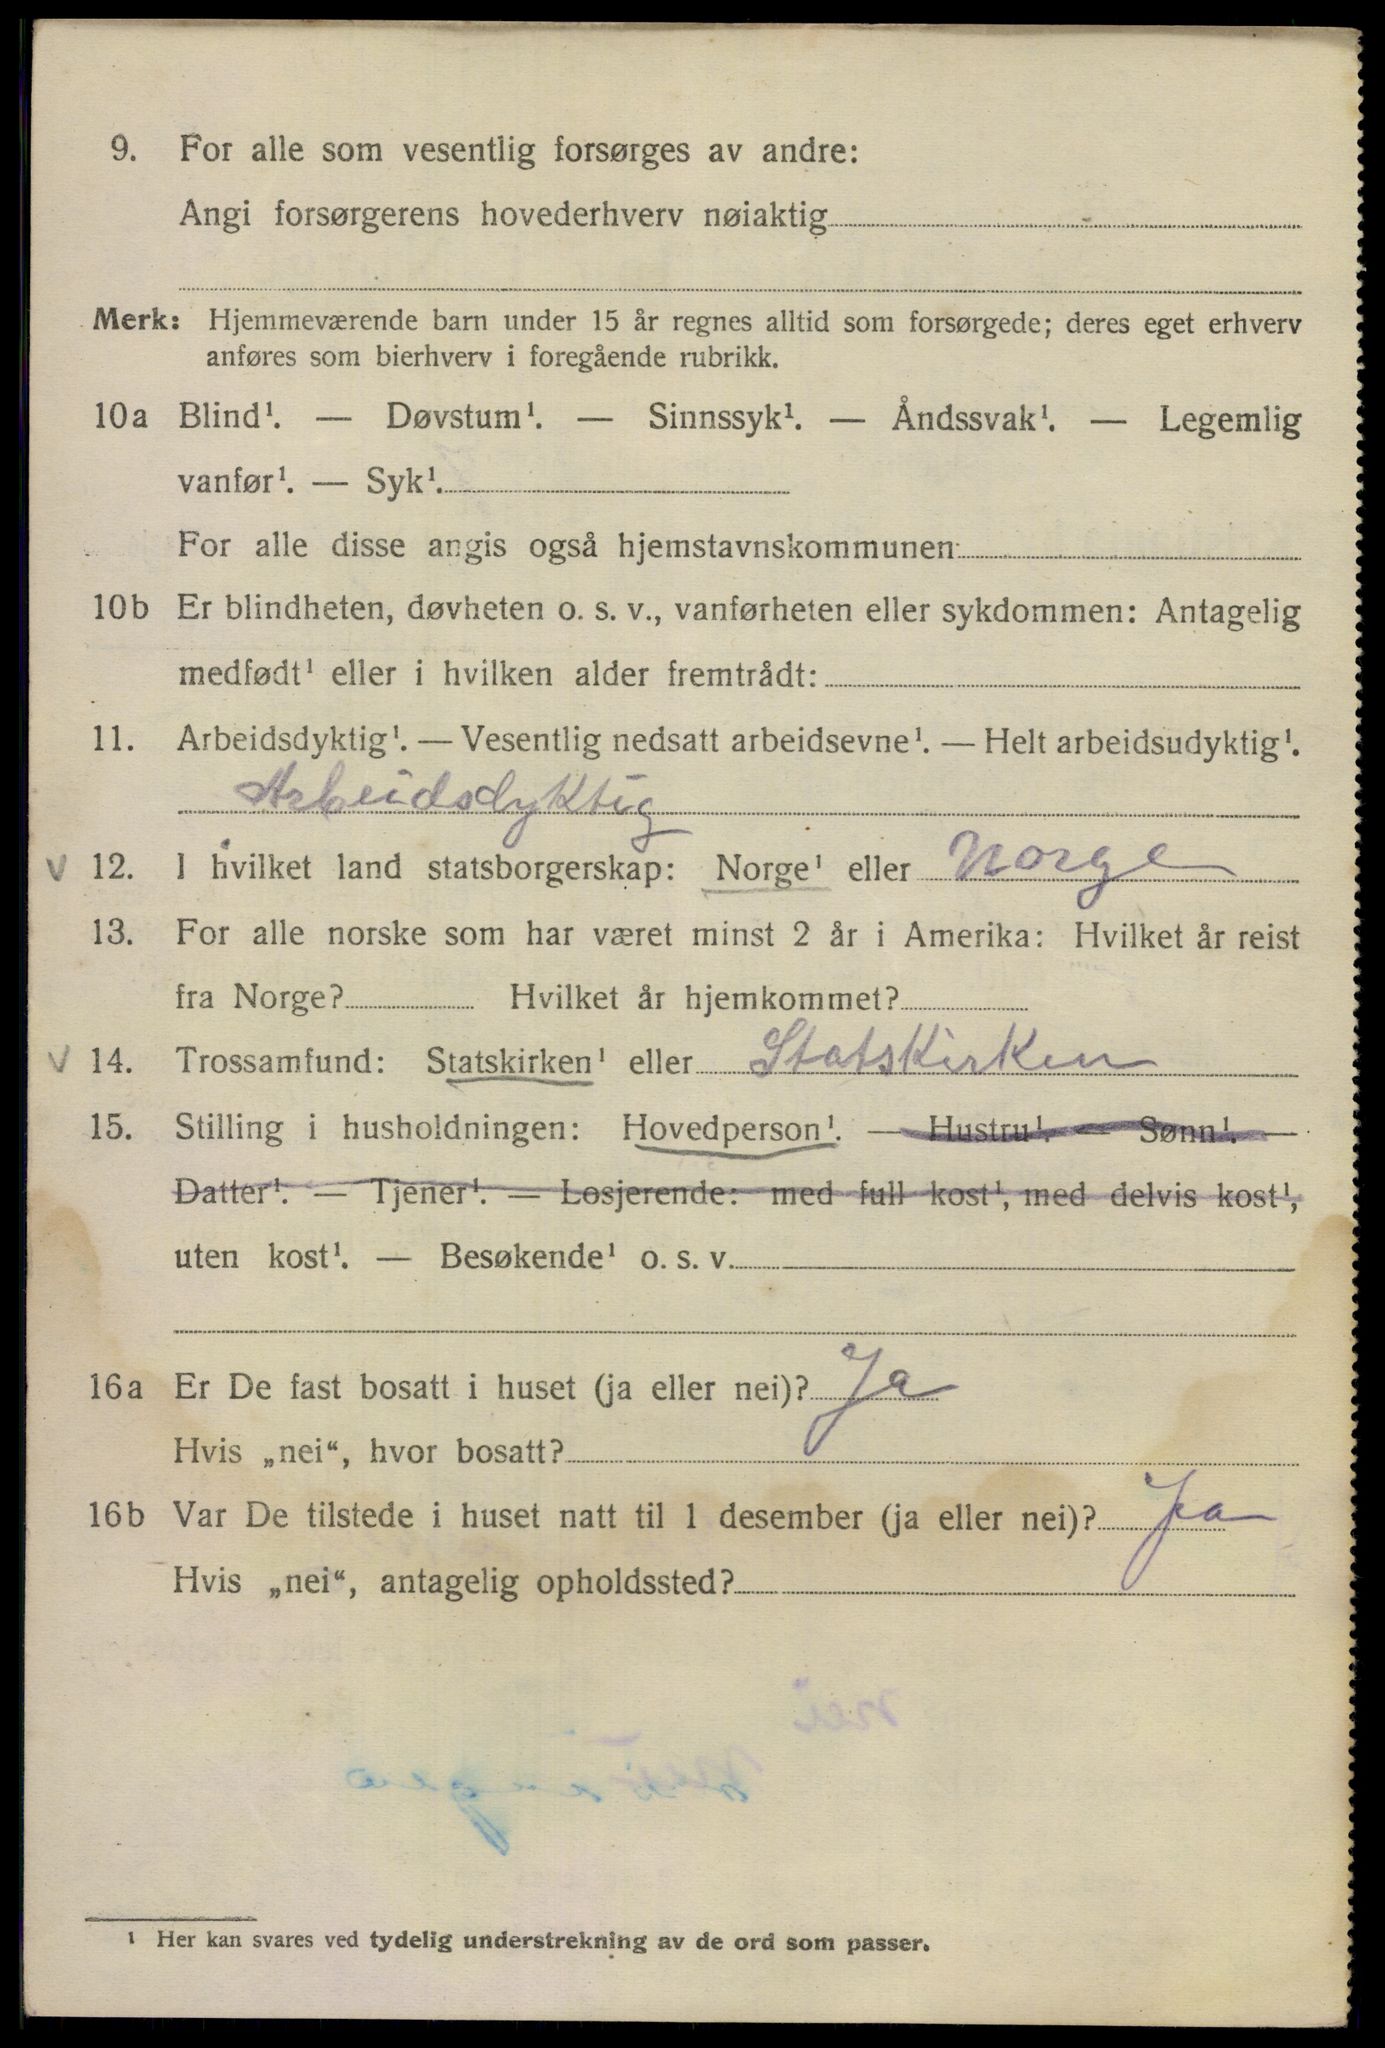 9. For alle som vesentlig forsørges av andre:
Angi forsørgerens hovederhverv nøiaktig
Merk: Hjemmeværende barn under 15 år regnes alltid som forsørgede; deres eget erhverv
anføres som bierhverv i foregående rubrikk.
10a Blind¹. — Døvstum¹. — Sinnssyk¹. — Åndssvak¹. — Legemlig
vanfør¹. — Syk¹.
For alle disse angis også hjemstavnskommunen
10b Er blindheten, døvheten o. s. v., vanførheten eller sykdommen: Antagelig
medfødt¹ eller i hvilken alder fremtrådt:
11. Arbeidsdyktig¹. — Vesentlig nedsatt arbeidsevne¹. — Helt arbeidsudyktig¹.
Arbeidsdyktig
V 12. I hvilket land statsborgerskap: Norge¹ eller Norge
13. For alle norske som har været minst 2 år i Amerika: Hvilket år reist
fra Norge? Hvilket år hjemkommet?
V 14. Trossamfund: Statskirken¹ eller Statskirken
15. Stilling i husholdningen: Hovedperson¹. — Hustru¹. — Sønn¹. —
Datter¹. — Tjener¹. — Losjerende: med full kost¹, med delvis kost¹,
uten kost¹. — Besøkende¹ o. s. v.
16a Er De fast bosatt i huset (ja eller nei)? Ja
Hvis „nei“, hvor bosatt?
16b Var De tilstede i huset natt til 1 desember (ja eller nei)? Ja
Hvis „nei“, antagelig opholdssted?
¹ Her kan svares ved tydelig understrekning av de ord som passer.